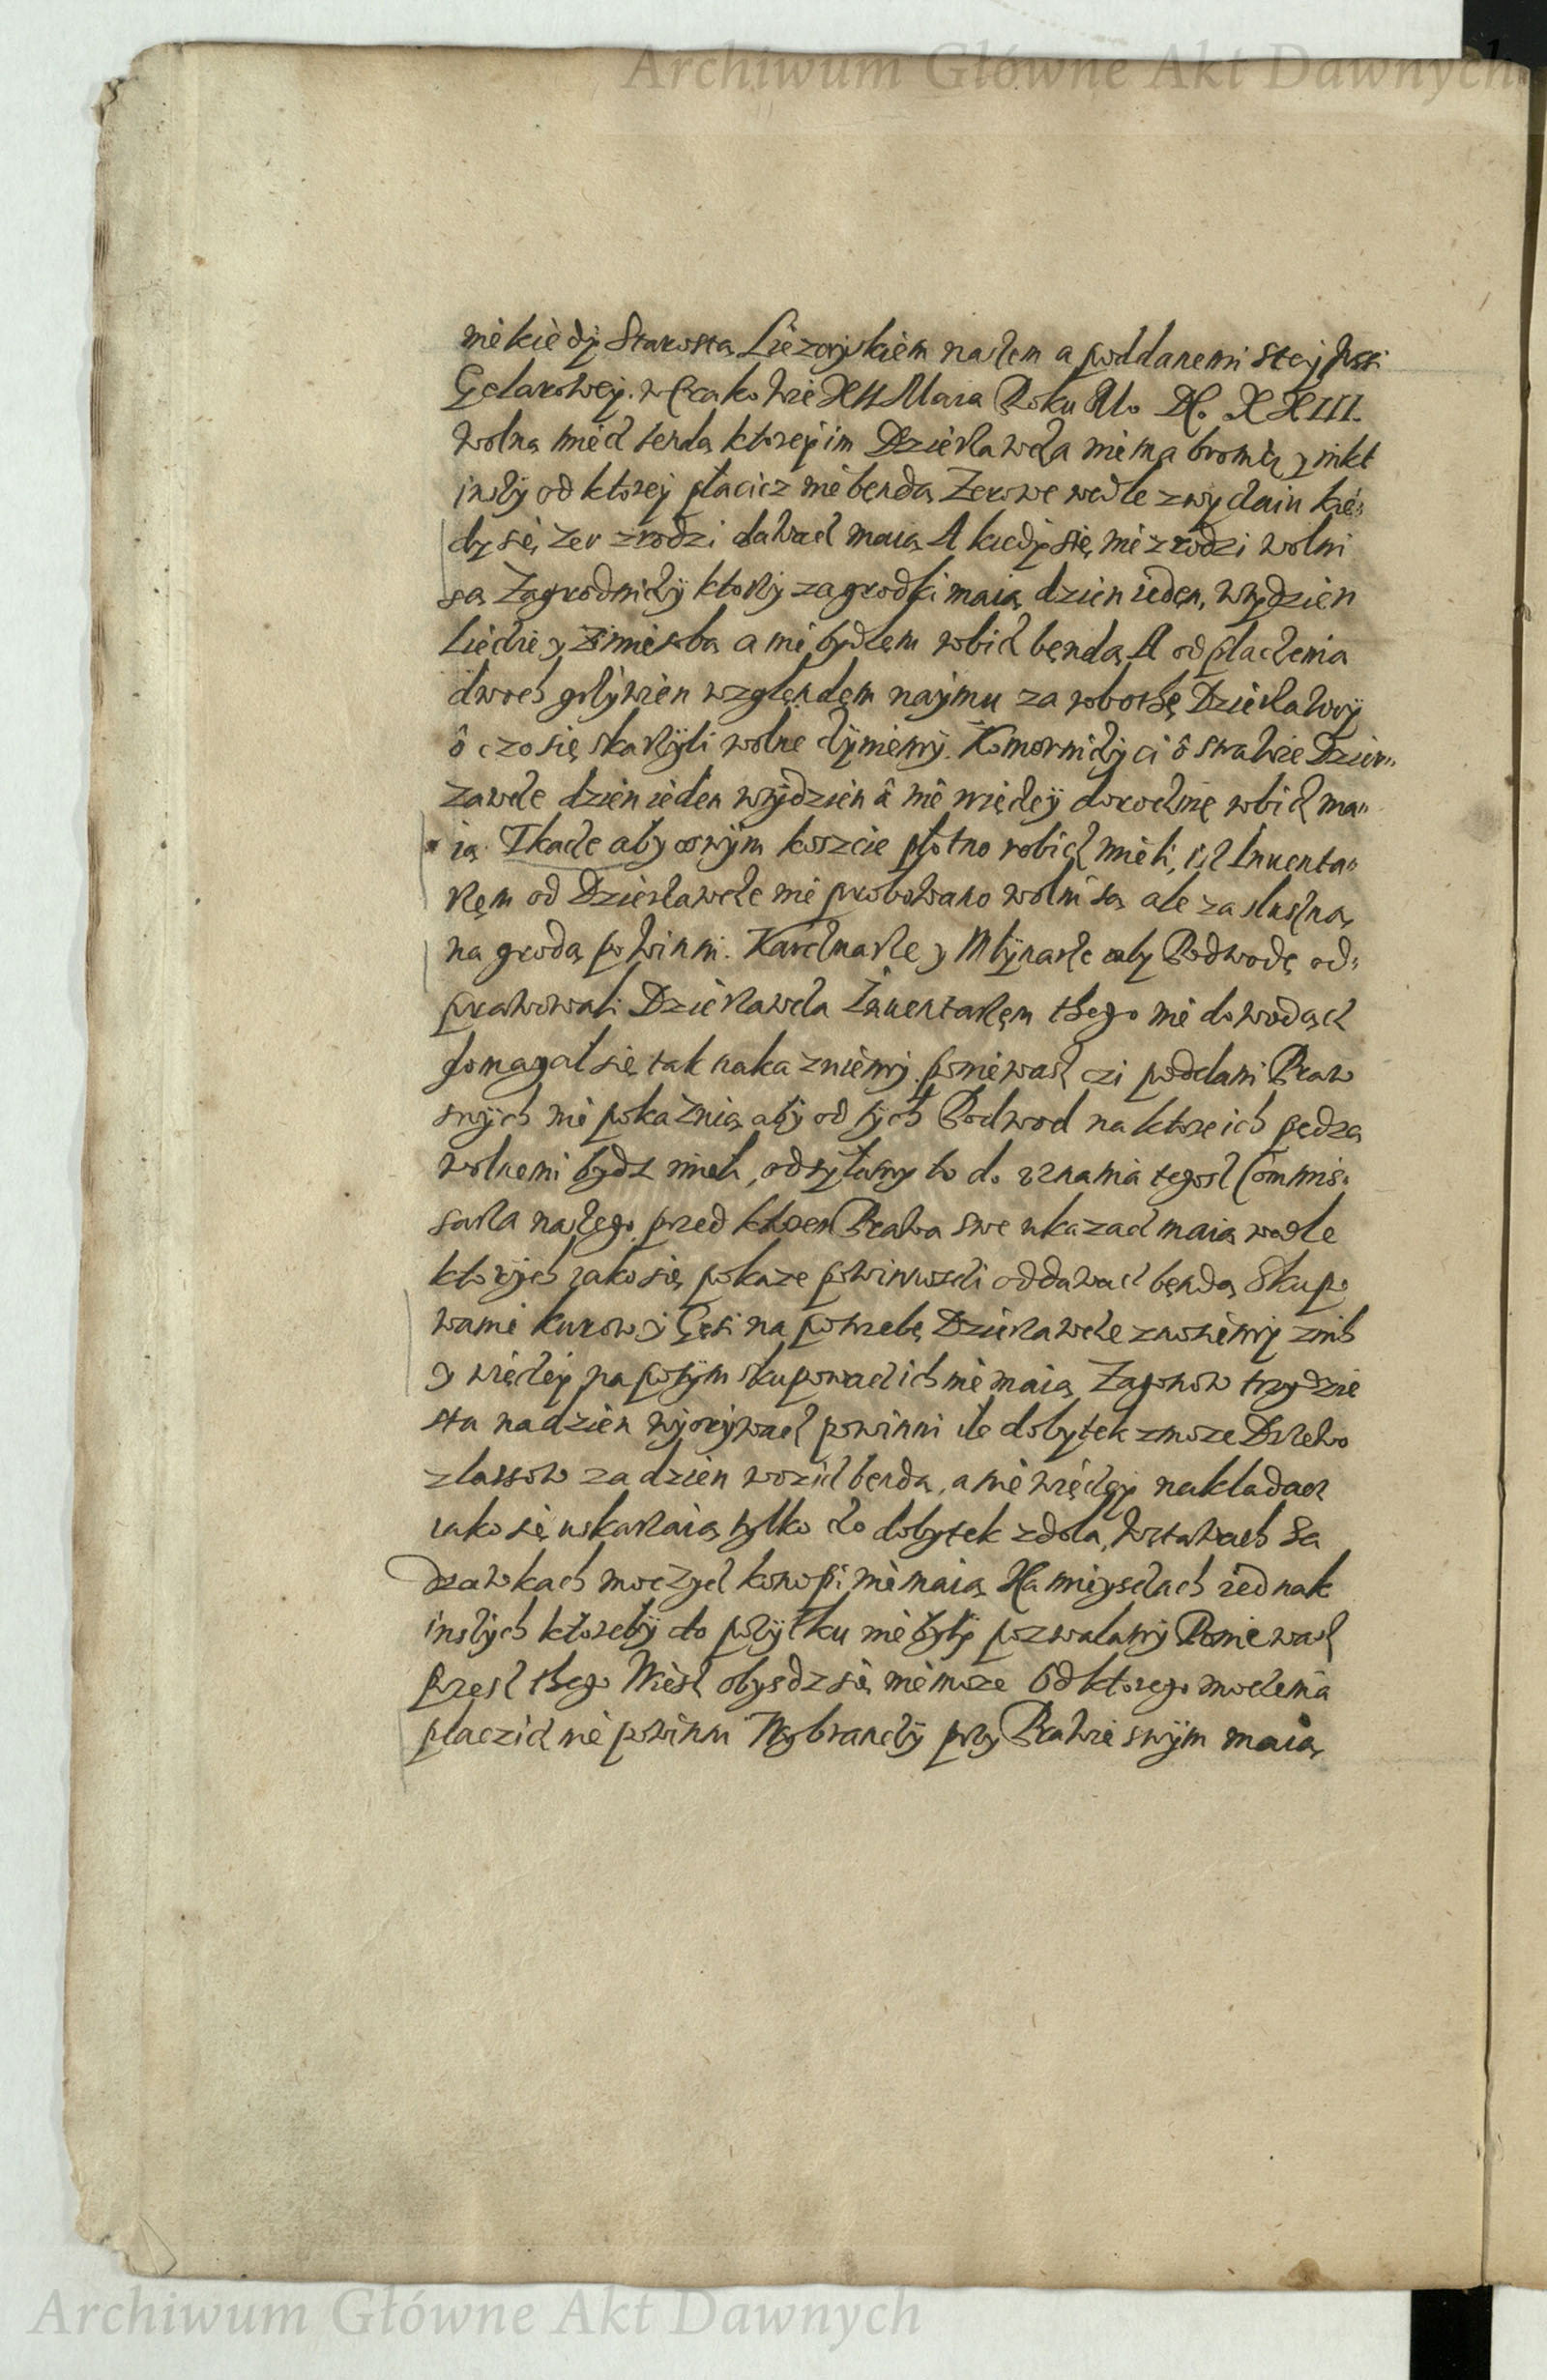 Archiwum Główne Akt Dawnych
niekiedy Starostą Liezayskiem naszem a poddanemi stey Wsi
Gelarowey. w Crakowie XII Maia Roku M. D. XXIII.
Wolną mieć bendą ktorey im Dzierzawcza nie ma bronić y nikt
inszy od ktorey płacicz nie bendą Zerowe wedle zwyczaiu kie„
dy się Zer zrodzi dawać maią A kiedy się nie zrodzi wolni
są Zagrodniczy ktorzy zagrodki maią dzien ieden, w tydzien
liecie y zimie sobą a nie bydłem robić bendą A od płaczenia
dwoch grzywien wzglendem naymu za robothę Dzierzawcy
o czo się skarżyli wolne czyniemy. Komorniczy ci o strawie Dzier„
zawcze dzien ieden w tydzien a nie więczey dorocznie robić ma„
ią Tkacze aby o swym koszcie płotno robić mieli, isz Inuenta„
rzem od Dzierzawcze nie probowano wolni są ale za słuszną
nagrodą powinni. Karczmarze y Młynarze aby Podwodę od„
prawowali Dzierzawcza Inuentarzem thego nie dowodząc
domagał się tak nakazuiemy. ponieważ czi poddani Praw
swych nie pokazuią aby od tych Podwod na ktore ich pędzą
wolnemi bydz mieli, odsyłamy to do uznania tegosz Commis„
sarza naszego przed ktorem Prawa swe ukazać maią wedle
ktorych iako się pokaze powinnosci oddawać bendą Skupo
wanie kurow y Gęsi na potrzebę Dzierzawcze znosiemy znich
y więczey na potym skupować ich nie maią Zagonow trzydzie
stu na dzien wyorywać powinni ile dobytek zmoze Drzewo
z lassow za dzien wozić bendą, a nie więczey nakładać
iako się uskarzaią tylko czo dobytek zdola, W stawach Sa
dzawkach moczyć konopi nie maią Na mieyscach iednak
inszych ktoreby do pożytku nie były pozwalamy Ponieważ
przesz thego Wiesz obysdz się nie moze Od ktorego moczenia
płaczić nie powinni Wybranczy przy Prawie swym maią
Archiwum Główne Akt Dawnych